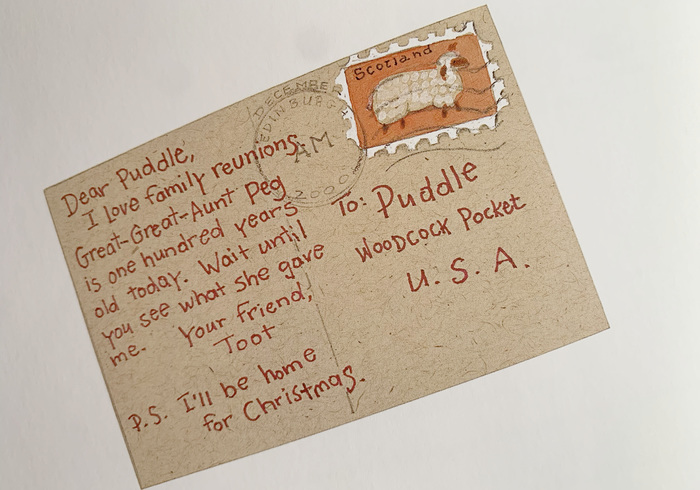 Dear Puddle,
I love family reunions.
Great-Great-Aunt Peg
is one hundred years
old today. Wait until
you see what she gave
me. Your friend,
Toot
P.S. I'll be home
for Christmas.
DECEMBER
EDINBURGH
AM
2000
Scotland
To: Puddle
Woodcock Pocket
U.S.A.